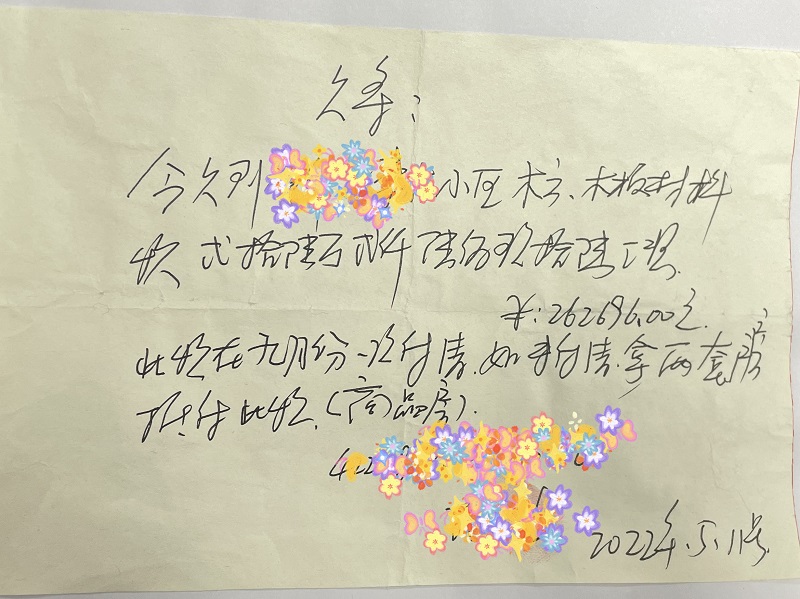 欠条:
今欠到 小区木方、木板材料
款 弍拾陆万弍仟陆佰玖拾陆元正.
¥:262696.00元.
此款在九月份一次付清.如未付清.拿两套房
抵付此款.(商品房).
2022年.5.11号.